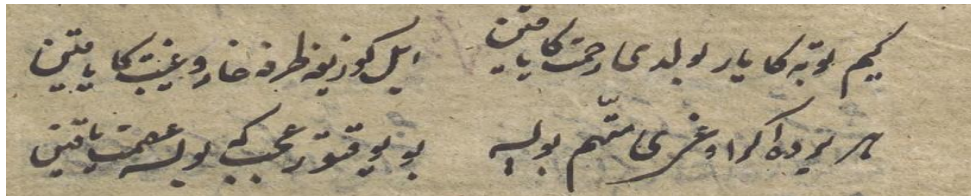 کیم توبه کا یار بولدی رحمت کا یاقین ایل کوزیغه طرفه خار و غیبت کا یاقین
هر یرده اکر اوغری متّهم بولسه بو یوقتور عجب که بولسه عصمت یاقین